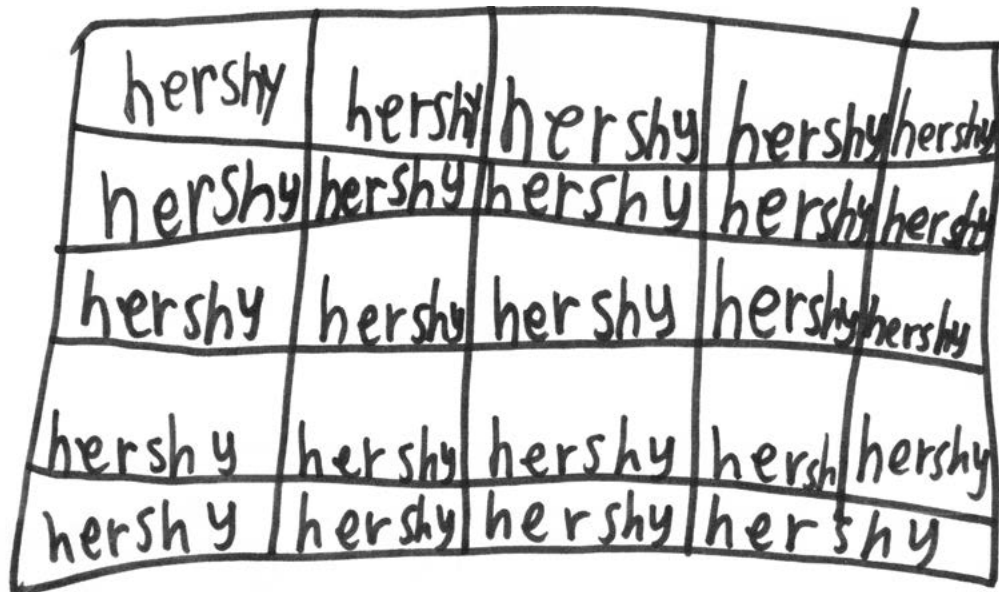 hershy hershy hershy hershy hershy
hershy hershy hershy hershy hershy
hershy hershy hershy hershy hershy
hershy hershy hershy hersh hershy
hershy hershy hershy hershy